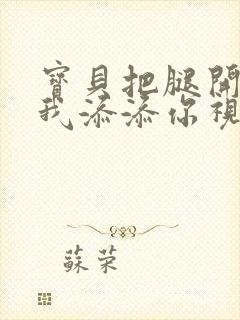 寶貝把腿開
我添添你視
蘇荣